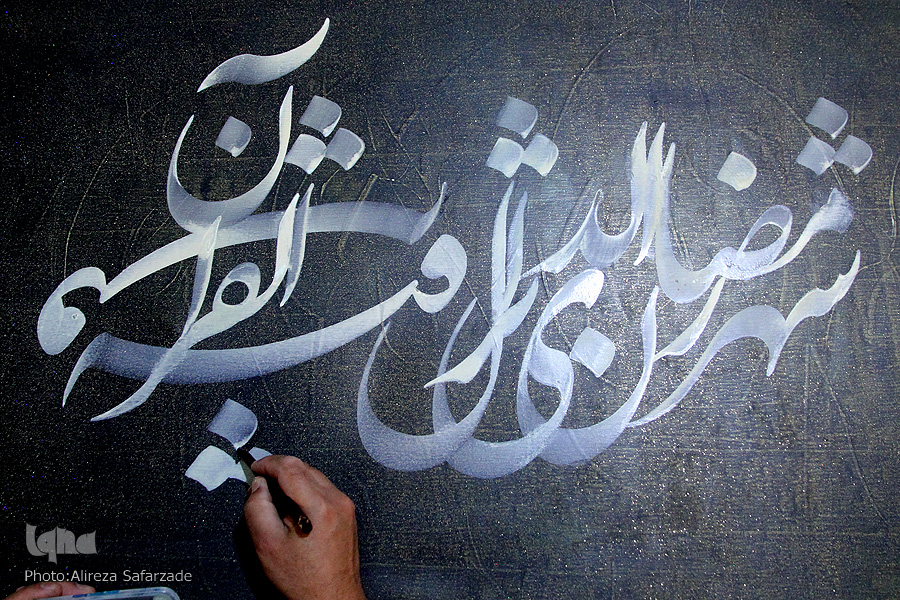 شهر رمضان الذی انزل فیه القرآن
Iqna
Photo:Alireza Safarzade